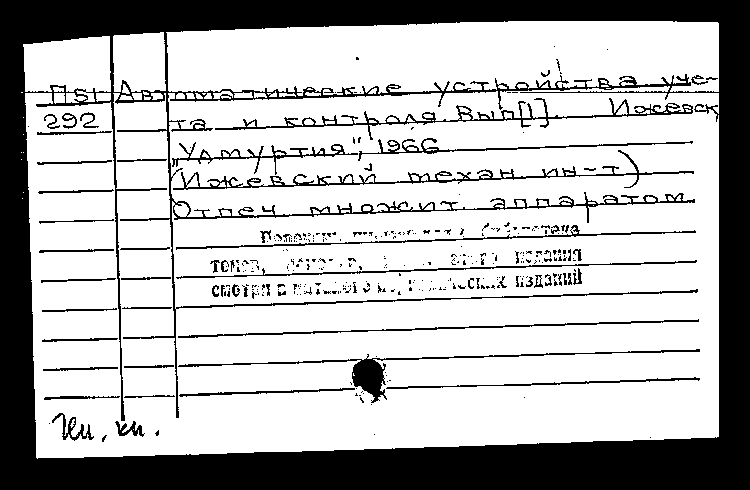 П51 Автоматические устройства уче-
292 та и контроля. Вып[1]. Ижевск
"Удмуртия", 1966
(Ижевский механ. ин-т)
Отпеч. множит. аппаратом
библиотека
томов, этого издания
смотри в каталоге изданий
кн.